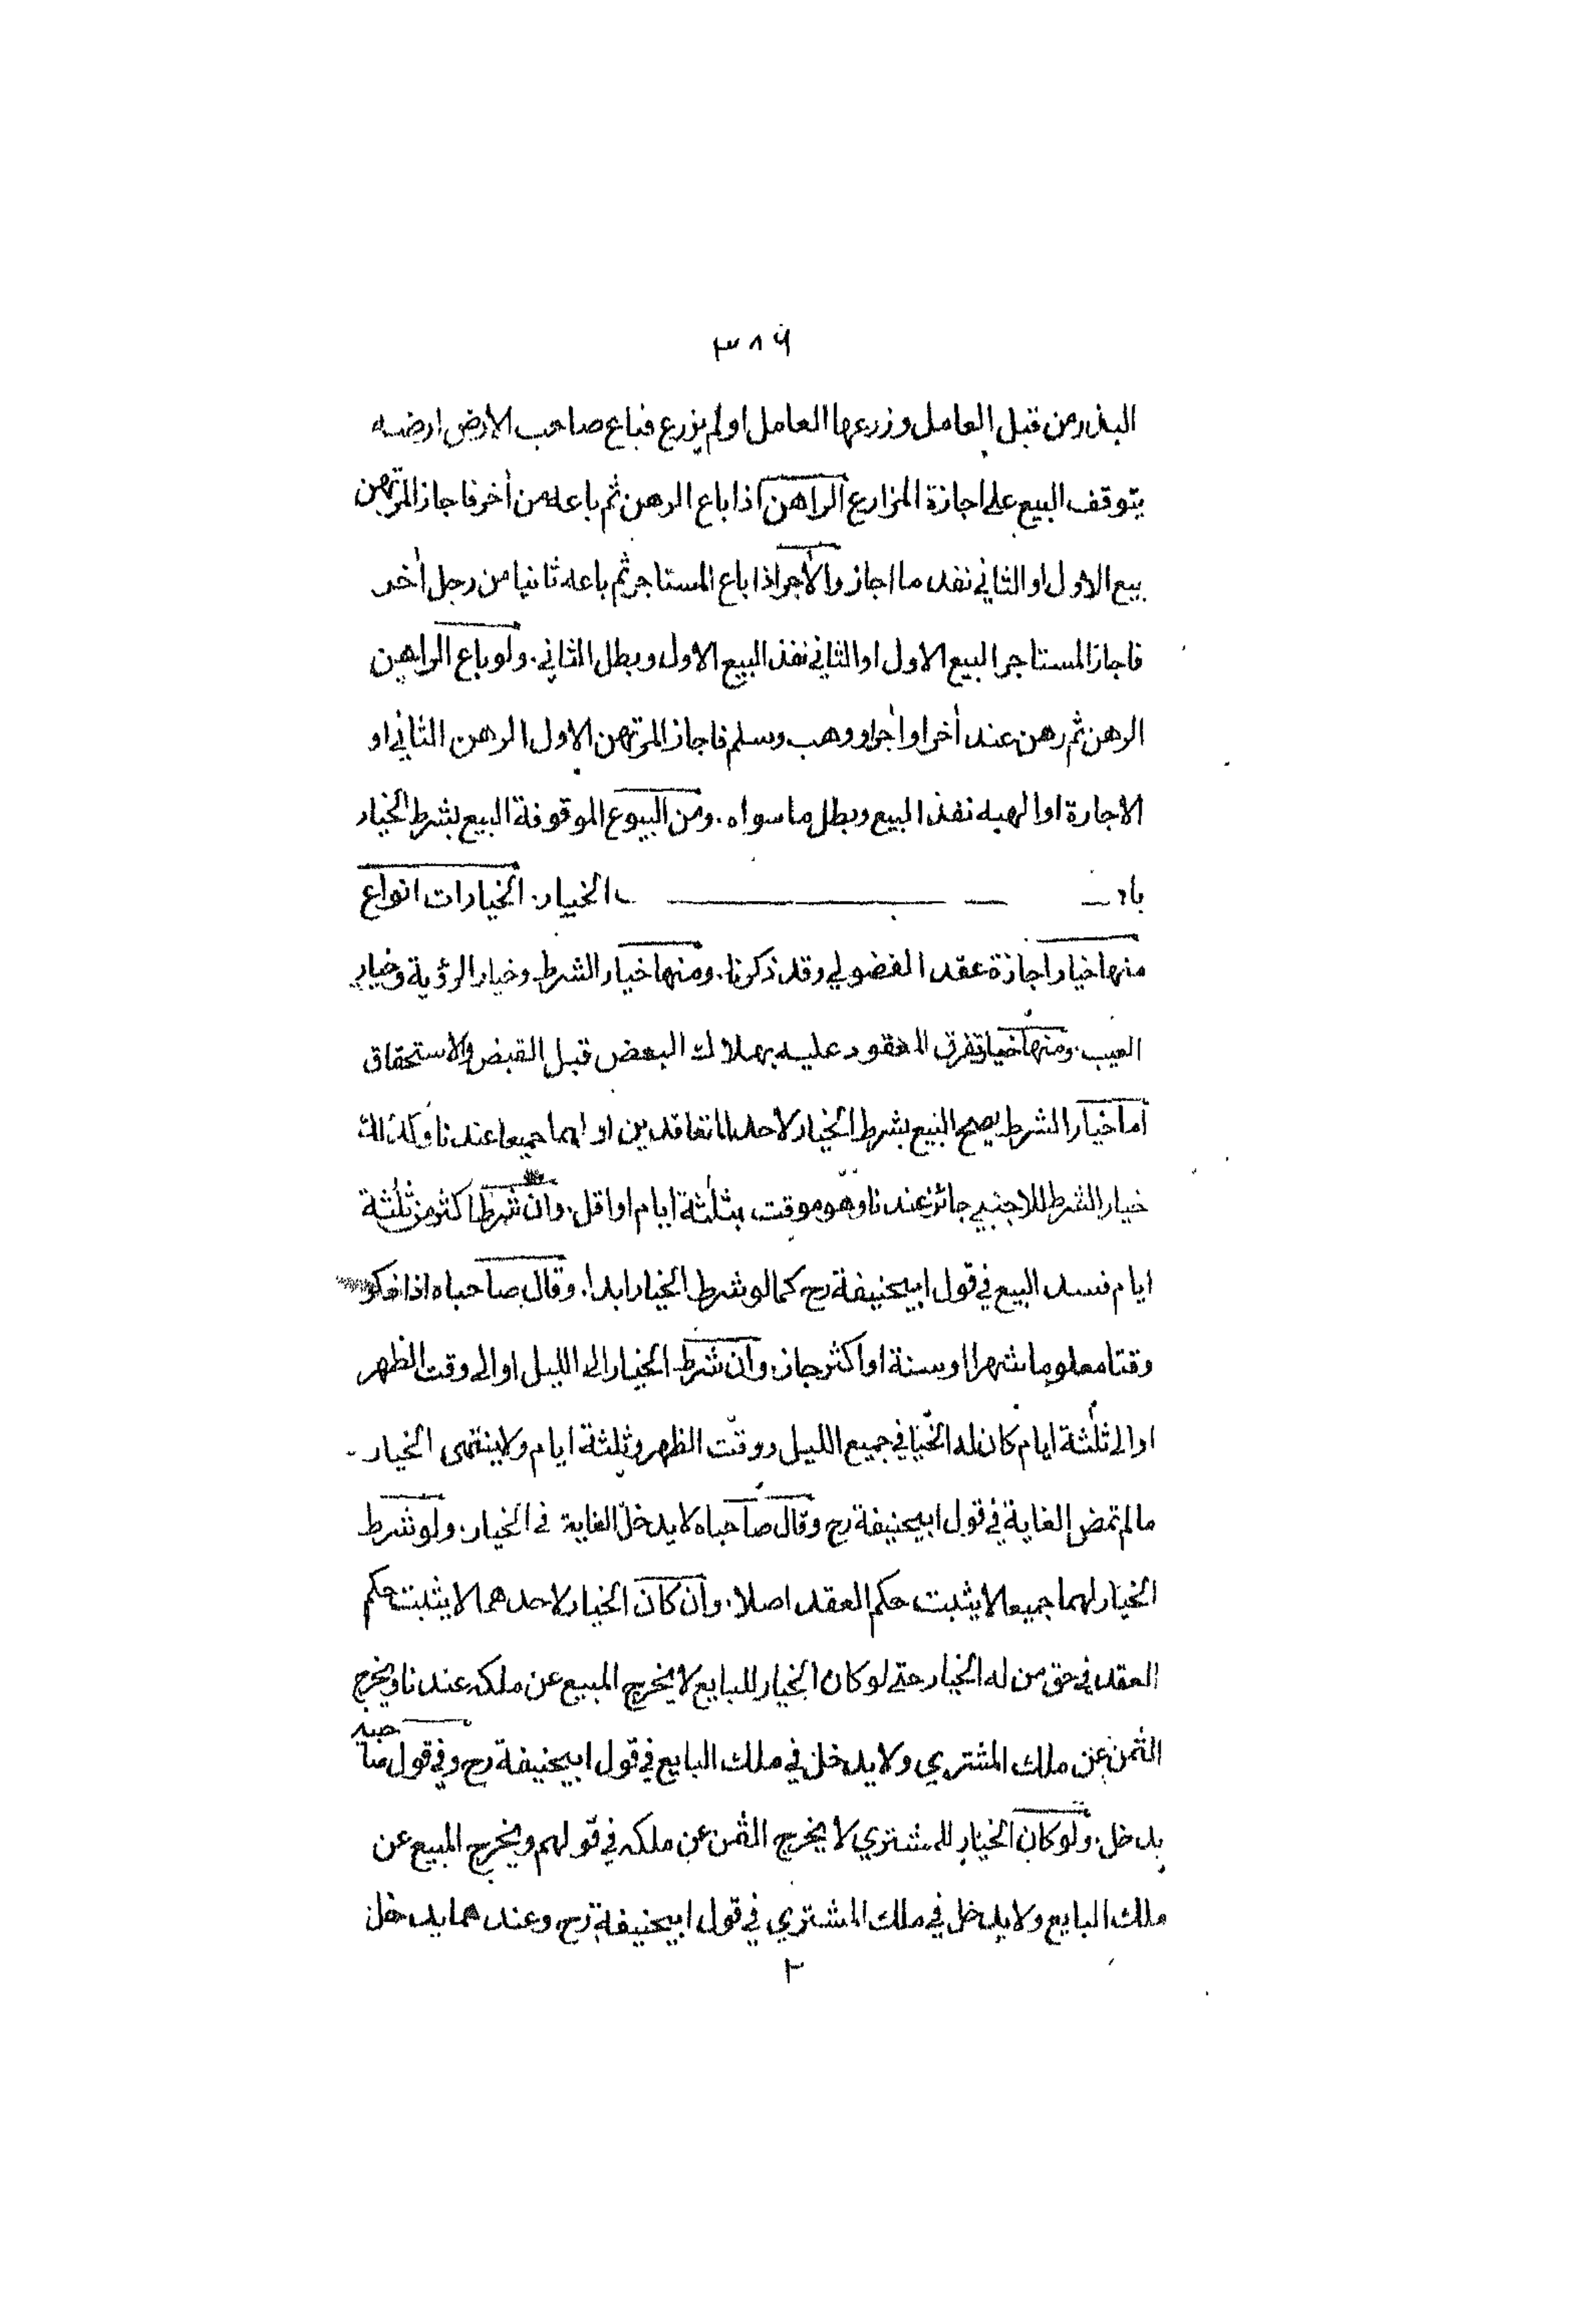 ٣٨٩
البذر من قبل العامل وزرعها العامل او لم يزرع فباع صاحب الارض ارضه
يتوقف البيع على اجازة المزارع الراهن اذا باع الرهن ثم باعه من أخر فاجاز المرتهن
بيع الاول او الثاني نفد ما اجاز والأجر اذا باع المستاجر ثم باعه ثانيا من رجل أخر
فاجاز المستاجر البيع الاول او الثاني نفذ البيع الاول وبطل الثاني. ولو باع الراهن
الرهن ثم رهن عند أخر او أجر او وهب وسلم فاجاز المرتهن الاول الرهن الثاني او
الاجارة او الهبه نفذ البيع وبطل ما سواه. ومن البيوع الموقوفة البيع بشرط الخيار
باب الخيار. الخيارات انواع
منها خيار اجازة عقد الفضولي وقد ذكرنا. ومنها خيار الشرط وخيار الرؤية وخيار
العيب. ومنها خيار تفرق المعقود عليه بهلاك البعض قبل القبض والاستحقاق
أما خيار الشرط يصح البيع بشرط الخيار لاحد المتعاقدين او لهما جميعا عندنا وكذلك
خيار الشرط للاجنبي جائز عندنا وهو موقت بثلثة ايام او اقل. وان شرط اكثر من ثلثة
ايام فسد البيع في قول ابيحنيفة رح كما لو شرط الخيار ابدا. وقال صاحباه اذا ذكر
وقتا معلوما شهرا او سنة او اكثر جاز. وان شرط الخيار الى الليل او الى وقت الظهر
او الى ثلثة ايام كان له الخيا في جميع الليل ووقت الظهر وثلثة ايام ولا ينتهى الخيار
ما لم تمض الغاية في قول ابيحنيفة رح وقال صاحباه لا يدخل الغاية في الخيار. ولو شرط
الخيار لهما جميعا لا يثبت حكم العقد اصلا. وان كان الخيار لاحدهما لا يثبت حكم
العقد في حق من له الخيار حتى لو كان الخيار للبايع لا يخرج المبيع عن ملكه عندنا ويخرج
الثمن عن ملك المشتري ولا يدخل في ملك البايع في قول ابيحنيفة رح وفي قول صاحبيه
يدخل. ولو كان الخيار للمشتري لا يخرج الثمن عن ملكه في قولهم ويخرج المبيع عن
ملك البايع ولا يدخل في ملك المشتري في قول ابيحنيفة رح وعندهما يدخل
٢